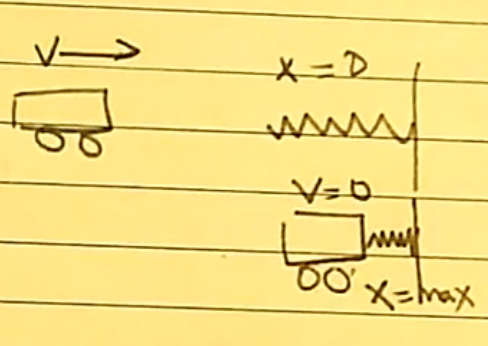 V
x = 0
V = 0
x = max